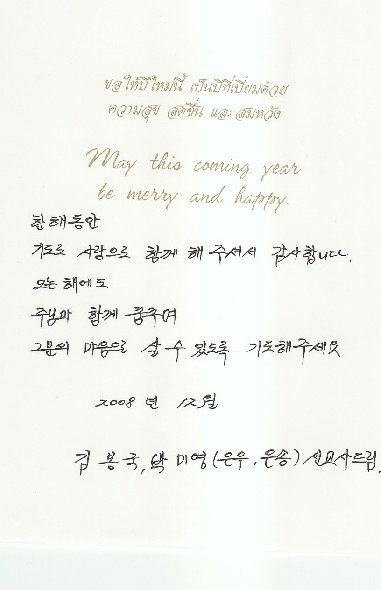 ขอให้ปีใหม่นี้ เป็นปีที่เปี่ยมด้วย
ความสุข สดชื่น และ สมหวัง
May this coming year
be merry and happy.
한해동안
기도로 사랑으로 함께 해 주셔서 감사합니다.
오는해에도
주님과 함께 꿈꾸며
그분의 마음으로 살 수 있도록 기도해주세요
2008 년 12월
김 봉 국, 박 미영 (은우, 은송) 선교사드림.